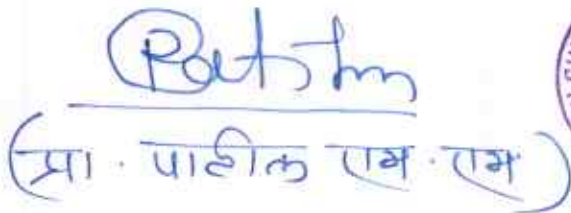 (प्रा. पाटील एम. एम)